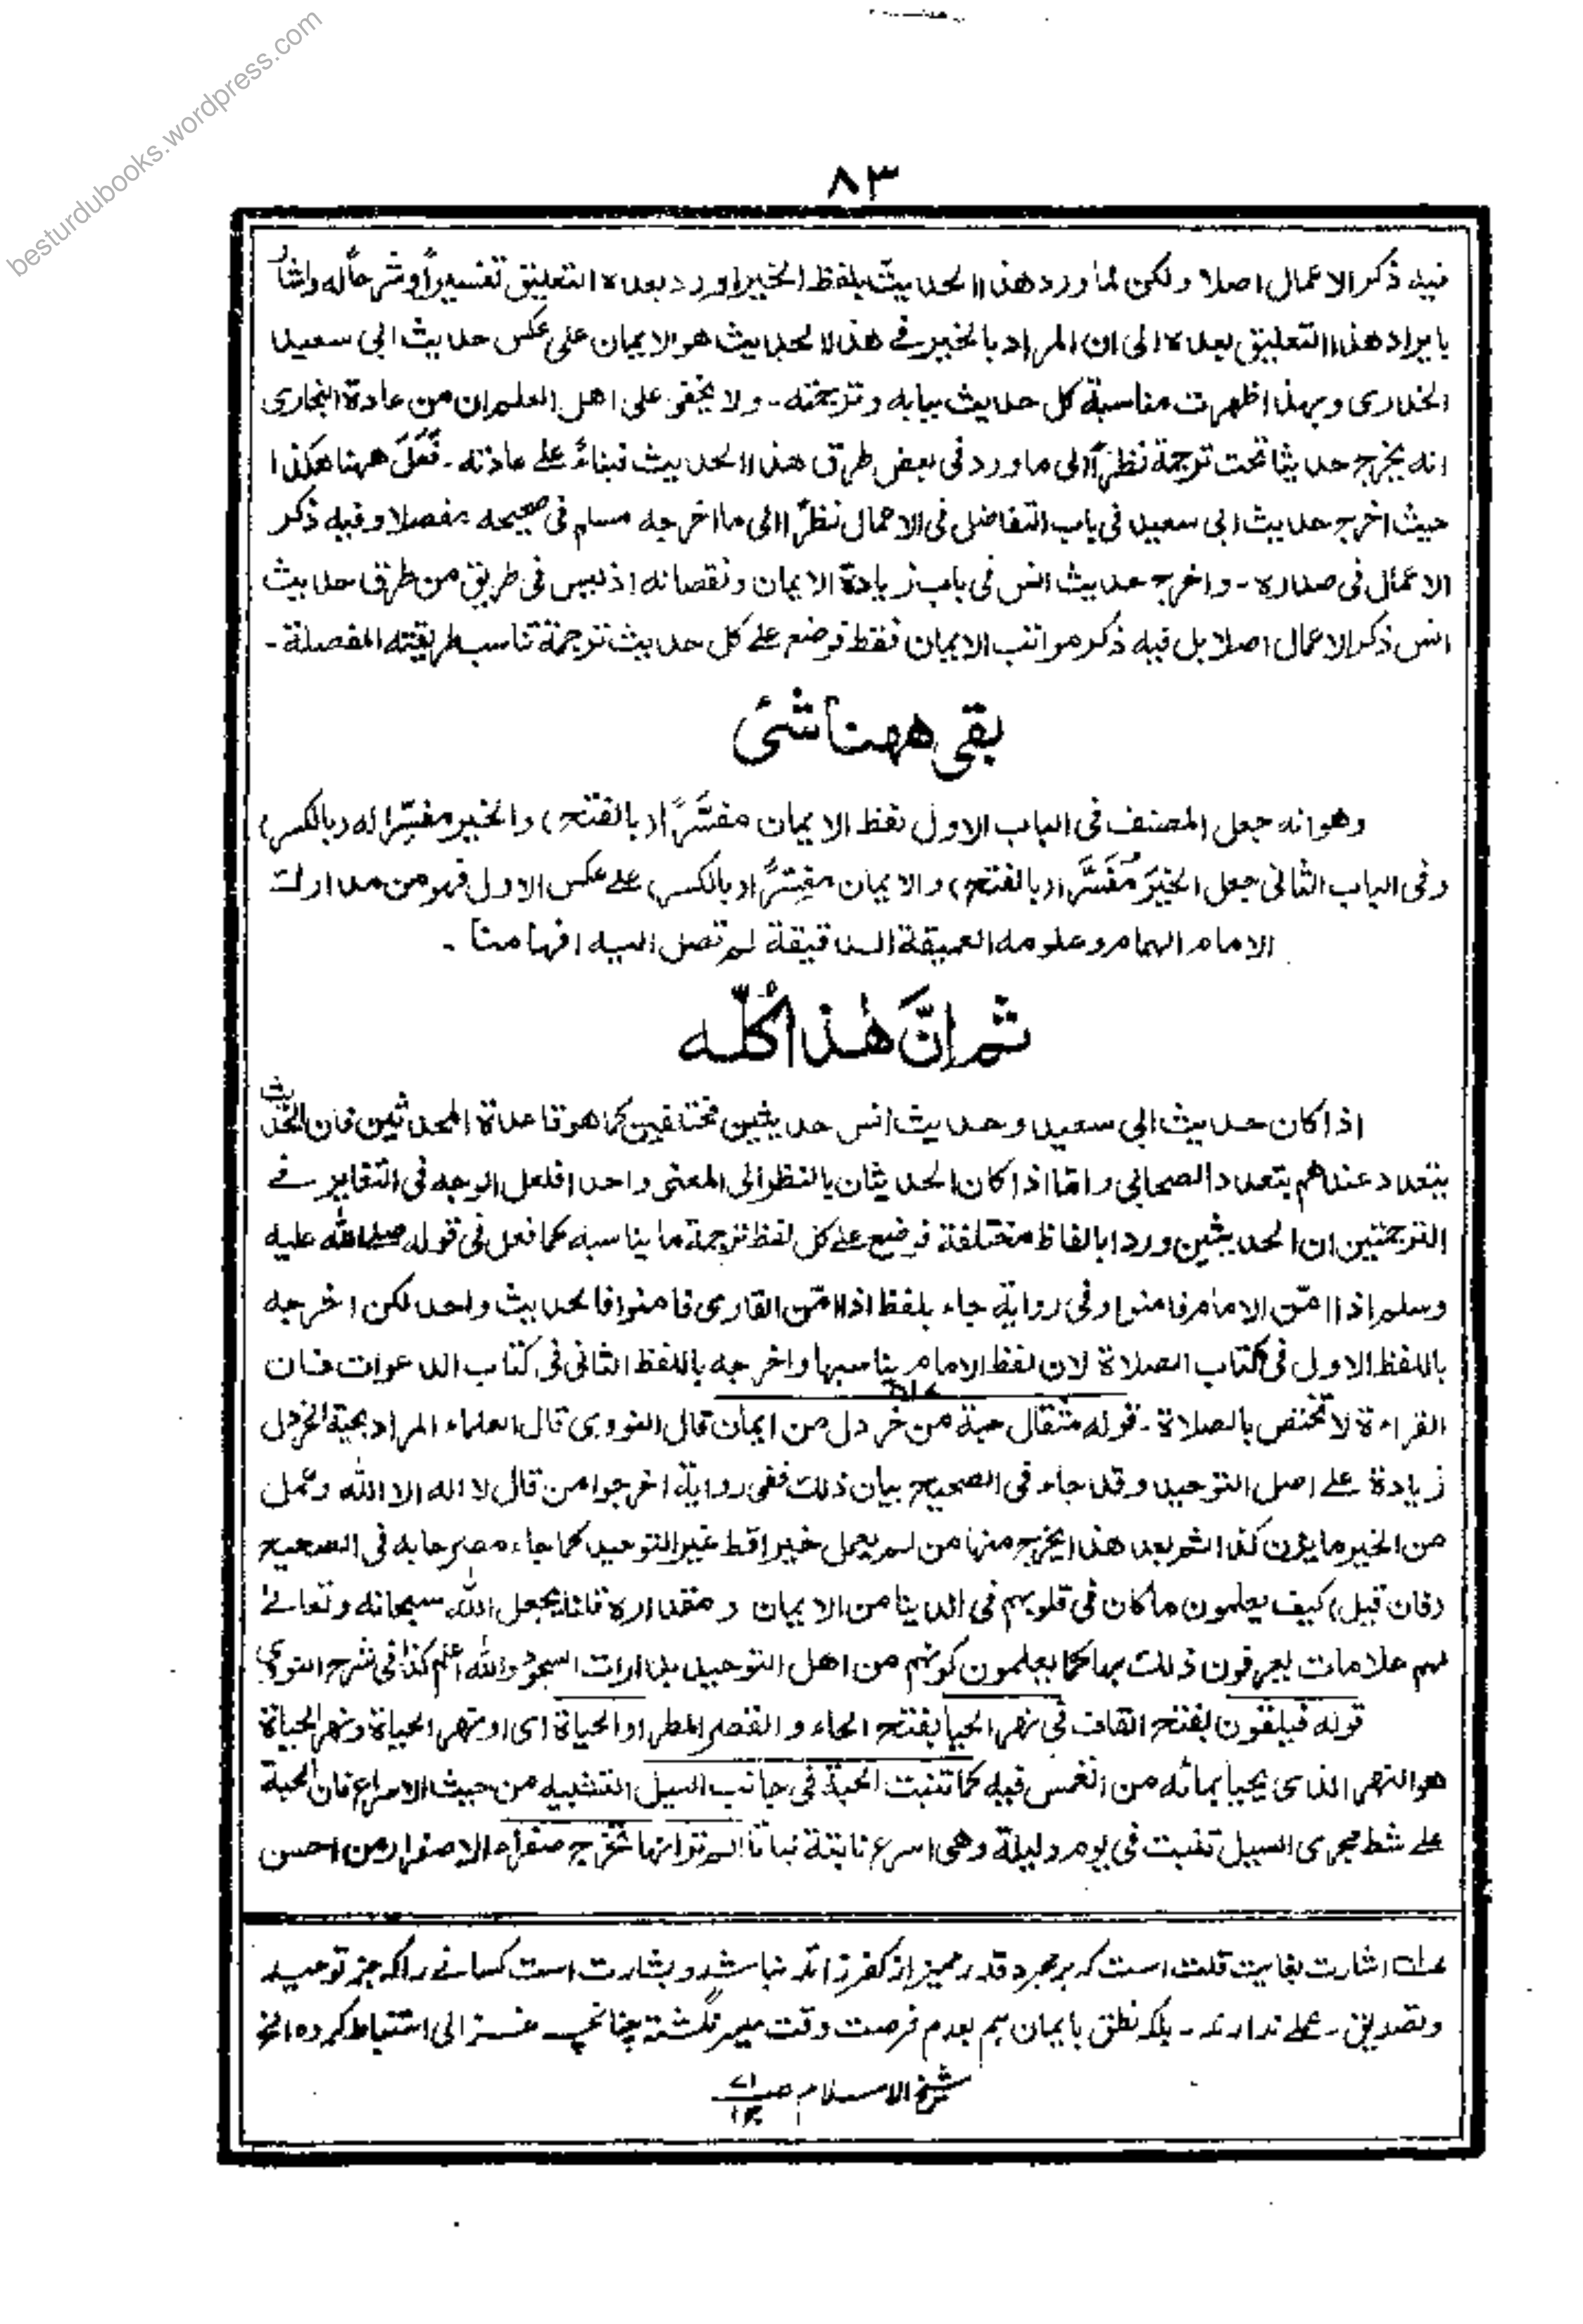 besturdubooks.wordpress.com
٨٣
فيه ذكر الاعمال اصلا ولكن لما ورد هذا الحديث بلفظ الخير اورد بعده التعليق تفسيراً وشرحاً له واشار
بايراد هذا التعليق بعده الى ان المراد بالخير فے هذا الحديث هو الايمان على عكس حديث ابى سعيد
الخدرى وبهذا ظهرت مناسبة كل حديث ببابه وترجمته - ولا يخفى على اهل العلم ان من عادة البخارى
انه يخرج حديثا تحت ترجمة نظراً الى ما ورد فى بعض طرق هذا الحديث فبناءً علے عادته - فَعَلَ ههنا هكذا
حيث اخرج حديث ابى سعيد فى باب التفاضل فى الاعمال نظرًا الى ما اخرجه مسلم فى صحيحه مفصلا وفيه ذكر
الاعمال فى صدره - واخرج حديث انس فى باب زيادة الايمان ونقصانه اذ ليس فى طريق من طرق حديث
انس ذكر الاعمال اصلا بل فيه ذكر مراتب الايمان فقط فوضع علے كل حديث ترجمة تناسب طريقته المفصلة -
بقى ههنا شئ
وهو انه جعل المصنف فى الباب الاول لفظ الايمان مفسَّرًا (بالفتح) والخير مفسِّرا له (بالكسر)
وفى الباب الثانى جعل الخيرَ مُفَسَّرا (بالفتح) والايمان مفسِّرًا (بالكسر) علے عكس الاول فهو من مدارك
الامام الهمام وعلومه العميقة الدقيقة لم تصل اليه افهامنا -
ثم اِنَّ هٰذا كُلّه
اذا كان حديث ابى سعيد وحديث انس حديثين مختلفين كما هو قاعدة المحدثين فان الحديث
يتعدد عندهم بتعدد الصحابى واما اذا كان الحديثان بالنظر الى المعنى واحدا فلعل الوجه فى التغاير فے
الترجمتين ان الحديثين وردا بالفاظ مختلفة فوضع علے كل لفظ ترجمة ما يناسبه كما فعل فى قوله صلى الله عليه
وسلم اذا امّن الامام فامنوا وفى رواية جاء بلفظ اذا امّن القارى فامنوا فالحديث واحد لكن اخرجه
باللفظ الاول فى كتاب الصلاة لان لفظ الامام يناسبها واخرجه باللفظ الثانى فى كتاب الدعوات فان
القراءة لا تختص بالصلاة - قوله مثقال حبة من خردل من ايمان قال النووى قال العلماء المراد بحبة الخردل
زيادة علے اصل التوحيد وقد جاء فى الصحيح بيان ذلك ففى رواية اخرجوا من قال لا اله الا الله وعمل
من الخير ما يزن كذا ثم بعد هذا يخرج منها من لم يعمل خيرا قط غير التوحيد كما جاء مصرحا به فى الصحيح
(فان قيل) كيف يعلمون ما كان فى قلوبهم فى الدينا من الايمان و مقداره قلنا يجعل الله سبحانه وتعالے
لهم علامات يعرفون ذلك بها كما يعلمون كونهم من اهل التوحيد بدارات السجود والله اعلم كذا فى شرح النووى
قوله فيلقون بفتح القاف فى نهر الحيا بفتح الحاء و القصر المطر او الحياة اى او نهر الحياة ونهر الحياة
هو النهر الذى يحيا بمائه من انغمس فيه كما تنبت الحبة فى جانب السيل التشبيه من حيث الاسراع فان الحبة
علے شط مجرى السيل تنبت فى يوم وليلة وهى اسرع نابتة نباتا الم تر انها تخرج صفراء الاصفرار من احسن
عـه اشارت بغايت قلت است كہ برمجرد قدر مميز از كفر زائد نباشد و بشارت است كسانے را كہ جز توحيد
وتصديق - عملے ندارند - بلكہ نطق بايمان ہم بعدم فرصت وقت ميسر نگشتہ چنانچہ غزالى استنباط كرده الخ
شيخ الاسلام صـ